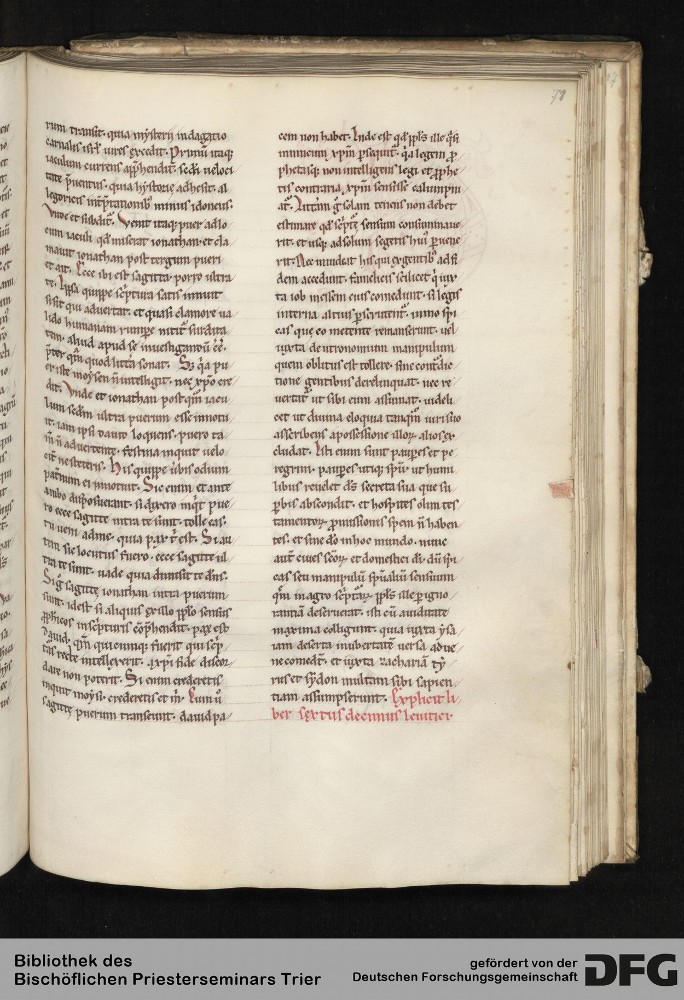 78
rum transit. quia mysterii indagatio
carnalis isrl' uires excedit. Primū itaq;
iaculum currens app̄hendit. sed ueloci
tate p̄uentus. quia hystorię adhesit. al
legoricis int̄p̄tationib; minus idoneus.
Vnde et subdit̄. Venit itaq; puer ad lo
cum iaculi qđ miserat ionathan. et cla
mauit ionathan post tergum pueri
et ait. Ecce ibi est sagitta. porro ultra
te. Ipsa quippe sc̄ptura satis innuit
si sit qui aduertat. et quasi clamore ua
lido humanam rumpe nitit̄ surdita
tem. aliud apud se inuestigandū ēē.
p̄ter qm̄ quod litt̄a sonat. Sȝ q̄a pu
er iste moysen n̄ intelligit. nec xp̄o cre
dit. Vnde et ionathan postqm̄ iacu
lum ultra puerum esse innotu
it. iam ipsi dauid loquens. puero ta
m̄ n̄ aduertente. festina inquit uelo
cit̄ ne steteris. His quippe ūbis odium
pat̄num ei innotuit. Sic enim et ante
ambo disposuerant. si dixero inq̄t pue
ro ecce sagittę intra te sunt. tolle eas.
tu ueni ad me. quia pax t̄ est. Si au
tem sic locutus fuero. ecce sagittę ul
tra te sunt. uade quia dimisit te dn̄s.
Si ḡ sagittę ionathan intra puerum
sunt. id est si aliquis ex illo pp̄lo sensus
pph̄icos in sc̄pturis cōp̄hendit. pax est
Dauid. qm̄ quicumq; fuerit qui sc̄p
tas recte intellexerit. a xp̄i fide discor
dare non poterit. Si enim crederetis
inquit moysi. crederetis et m̄. Cum ū
sagittę puerum transeunt. dauid pa
cem non habet. Inde est qđ pp̄ls ille q̄si
inimicum xp̄m p̄sequit̄. q̄a legem p̄
phetasq; non intelligens legi et p̄phe
tis contraria xp̄m sensisse calumpni
at̄. Litt̄am ḡ solam tenens non debet
estimare qđ sc̄ptę sensum consummaue
rit. et usq; ad solum segetis hui' p̄uene
rit. Nec inuideat his qui ex gentib; ad fi
dem accedunt. famelicis scilicet q̄ iux
ta iob messem eius comedunt. si legis
interna altius p̄scrutent̄. immo spi
cas quę eo metente remanserunt. uel
iuxta deutronomium manipulum
quem oblitus est tollere. sine cont̄dic
tione gentibus derelinquat. nec re
uertat̄ ut sibi eum assumat. uideli
cet ut diuina eloquia tanqm̄ iuri suo
asscribens a possessione illoꝝ alios ex
cludat. Isti enim sunt paup̄es et pe
regrini. paup̄es utiq; sp̄u. ut humi
libus reuelet dš secreta sua que su
p̄bis abscondit. et hospites olim tes
tamentoꝝ p̄missionis spem n̄ haben
tes. et sine dō in hoc mundo. nunc
aut̄ ciues sc̄oꝝ et domestici dī. dū spi
cas seu manipulū sp̄ualiū sensuum
qm̄ in agro sc̄ptaꝝ pp̄ls ille p̄ igno
rantiā deseruerat. isti cū auiditate
maxima colligunt. quia iuxta ysa
iam deserta in ubertatē uersa adue
ne comedēt. et iuxta zachariā ty
rus et sydon multam sibi sapien
tiam assumpserunt. Explicit li
ber sextus decimus leuitici.
Bibliothek des
Bischöflichen Priesterseminars Trier
gefördert von der
Deutschen Forschungsgemeinschaft
DFG